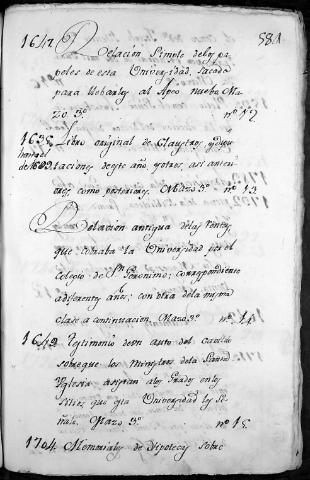 581
1642 Relacion simple delos pa-
peles de esta Universidad, sacada
para llebarlos al Arco nuebo Ma-
zo 3º. nº 12
1635 Libro original de Claustros, y
hasta el laciones de este año, y otros, asi anteri
de 1639. ores, como posteriores. Mazo 3º nº 13
Relacion antigua delas Rentas
que cobraba la Universidad por el
Colegio de Sn. Geronimo; correspondiente
a diferentes años; con otra dela misma
clase a continuacion. Mazo 3º. nº 14
1649 Testimonio de vn auto del Cavildo
sobre que los Ministros dela Santa
Yglesia asistan alos Grados en los
sitios que esta Universidad les se-
ñale. Mazo 3º nº 15.
1704 Memoriales de Ypotecas sobre